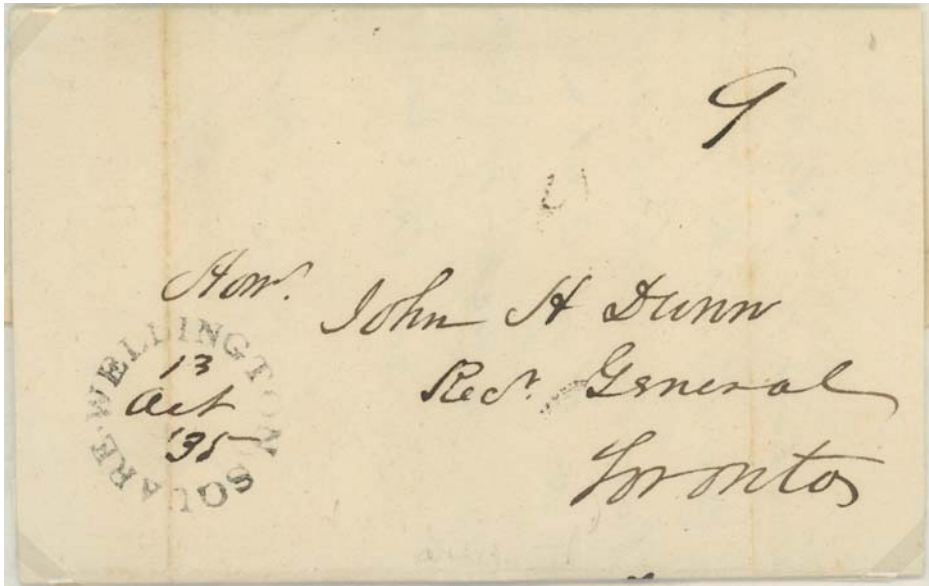 9
Honr. John H Dunn
Recr. General
Toronto
WELLINGTON SQUARE
13
Oct
'35